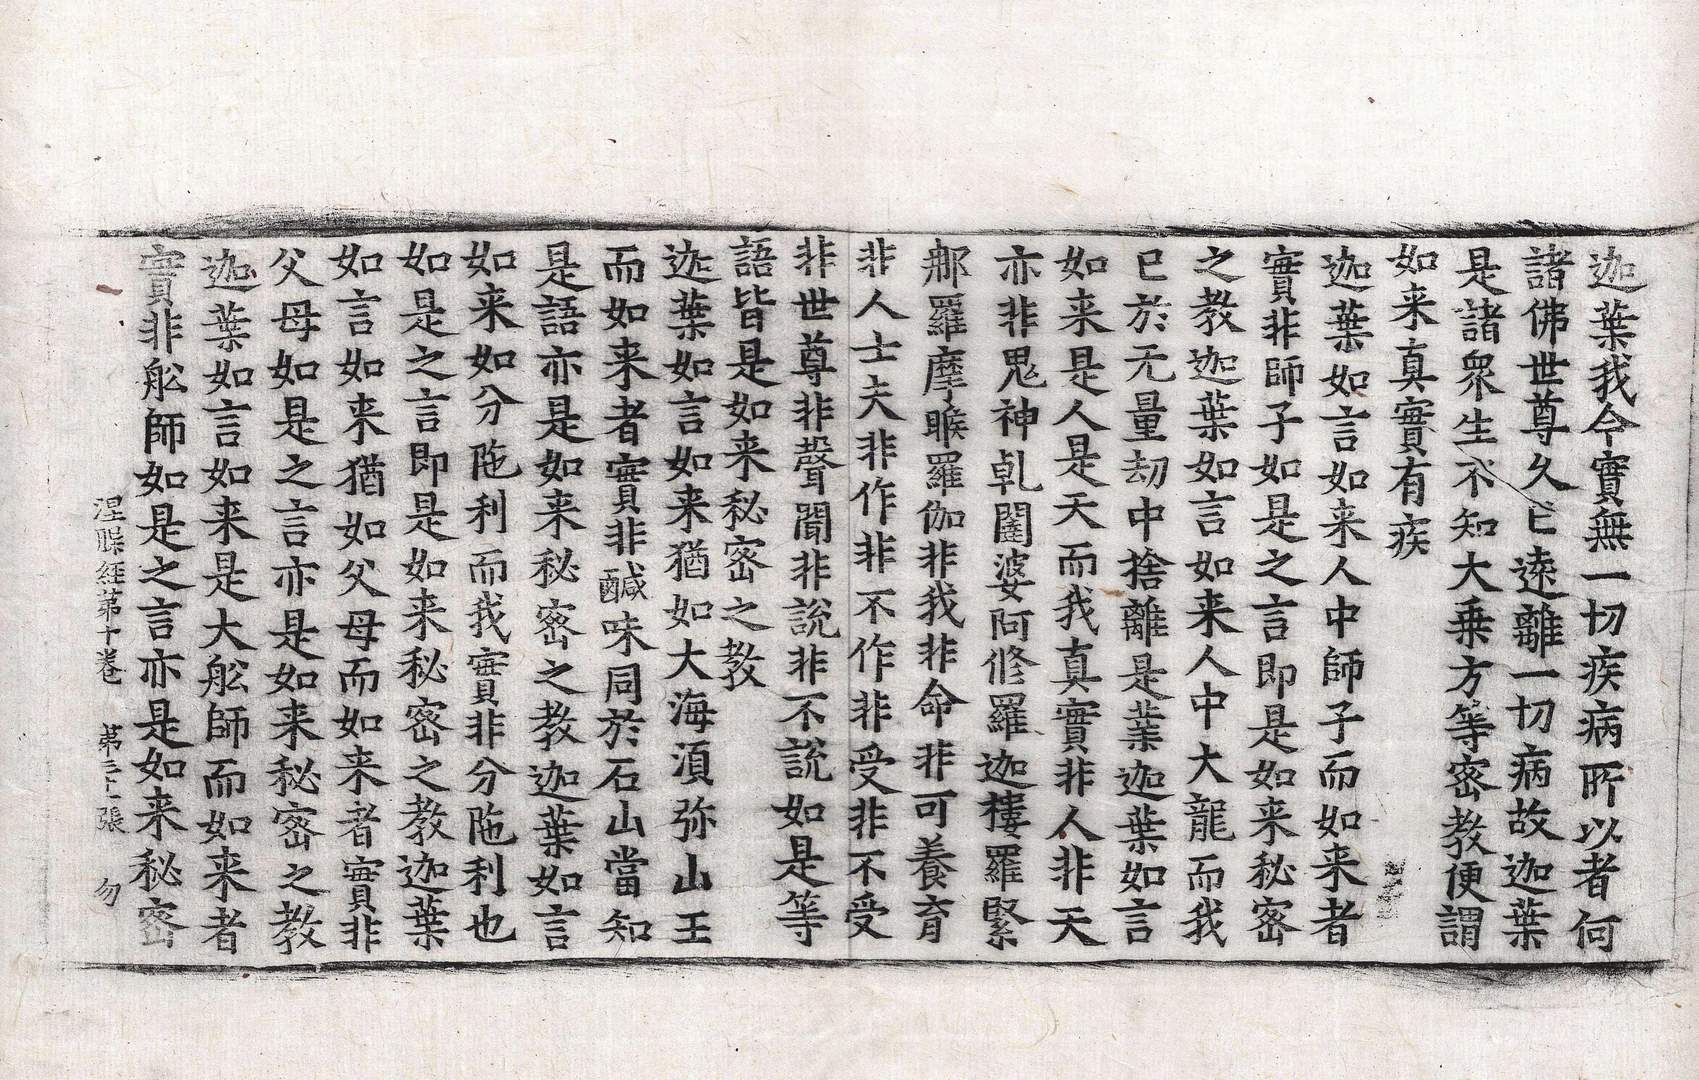 迦葉我今實無一切疾病所以者何
諸佛世尊久已遠離一切病故迦葉
是諸衆生不知大乗方等密教便謂
如来真實有疾
迦葉如言如来人中師子而如来者
實非師子如是之言即是如来秘密
之教迦葉如言如来人中大龍而我
已於无量劫中捨離是業迦葉如言
如来是人是天而我真實非人非天
亦非鬼神乹闥婆阿修羅迦樓羅緊
那羅摩睺羅伽非我非命非可養育
非人士夫非作非不作非受非不受
非世尊非聲聞非說非不說如是等
語皆是如来秘密之教
迦葉如言如来猶如大海湏弥山王
而如来者實非鹹味同於石山當知
是語亦是如来秘密之教迦葉如言
如来如分陁利而我實非分陁利也
如是之言即是如来秘密之教迦葉
如言如来猶如父母而如来者實非
父母如是之言亦是如来秘密之教
迦葉如言如来是大舩師而如来者
實非舩師如是之言亦是如来秘密
涅槃経苐十卷 苐張 勿